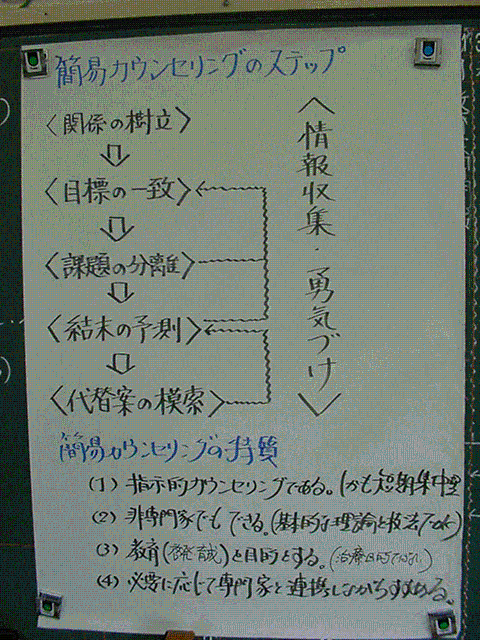 簡易カウンセリングのステップ
〈関係の樹立〉
〈目標の一致〉
〈課題の分離〉
〈結末の予測〉
〈代替案の模索〉
〈情報収集・勇気づけ〉
簡易カウンセリングの特質
(1) 指示的カウンセリングである。しかも短期集中型
(2) 非専門家でもできる。(基本的な理論と技法でOK)
(3) 教育(啓発)を目的とする。(治療目的でない)
(4) 必要に応じて専門家と連携しながらすすめる。